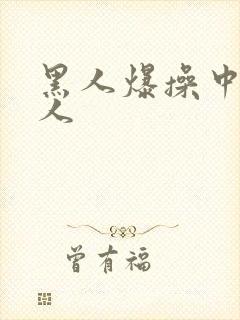 黑人爆操中
人
曾有福